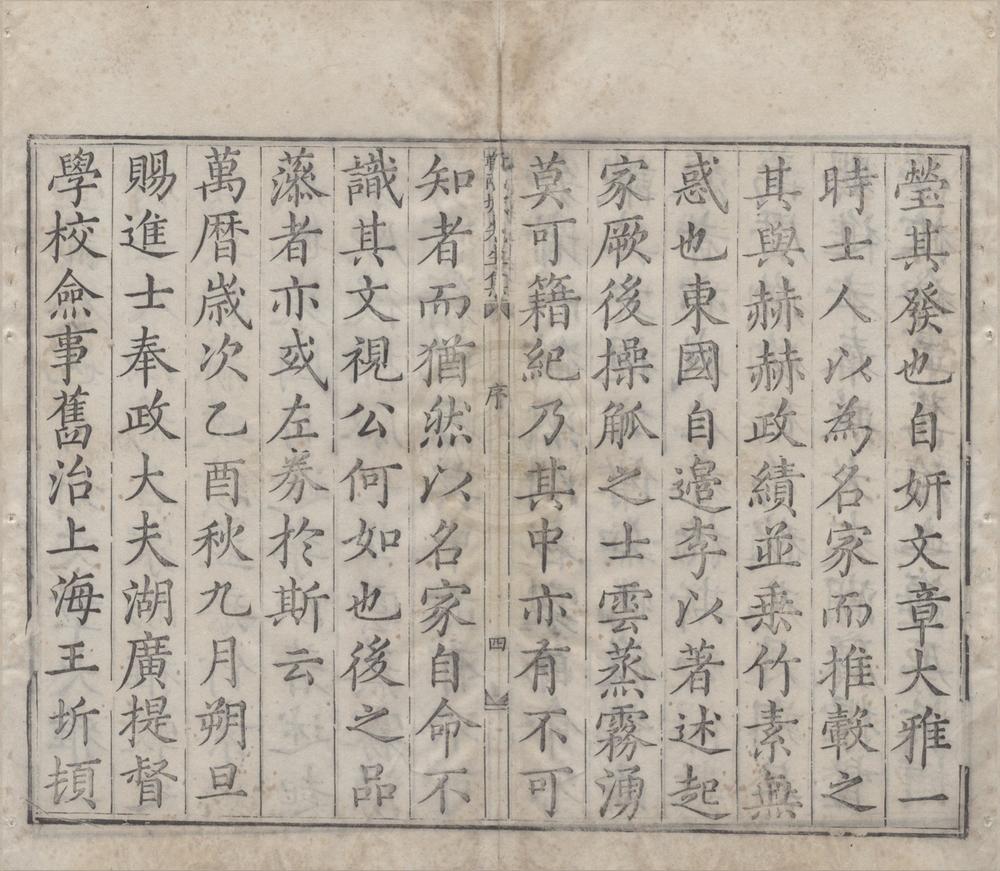 瑩其發也自妍文章大雅一
時士人以為名家而推轂之
其與赫赫政績並乗竹素無
惑也東國自邉李以著述起
家厥後操觚之士雲蒸霧湧
莫可籍紀乃其中亦有不可
序
四
知者而猶然以名家自命不
識其文視公何如也後之品
藻者亦或左券於斯云
萬曆歲次乙酉秋九月朔旦
賜進士奉政大夫湖廣提督
學校僉事舊治上海王圻頓